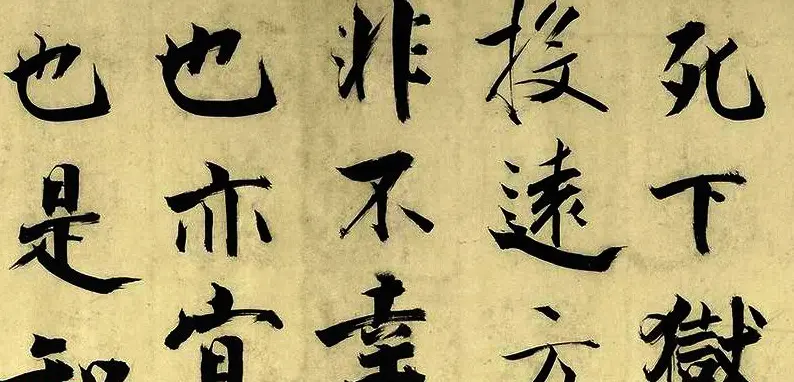 死下獄
投遠方
非不幸
也亦宜
也是